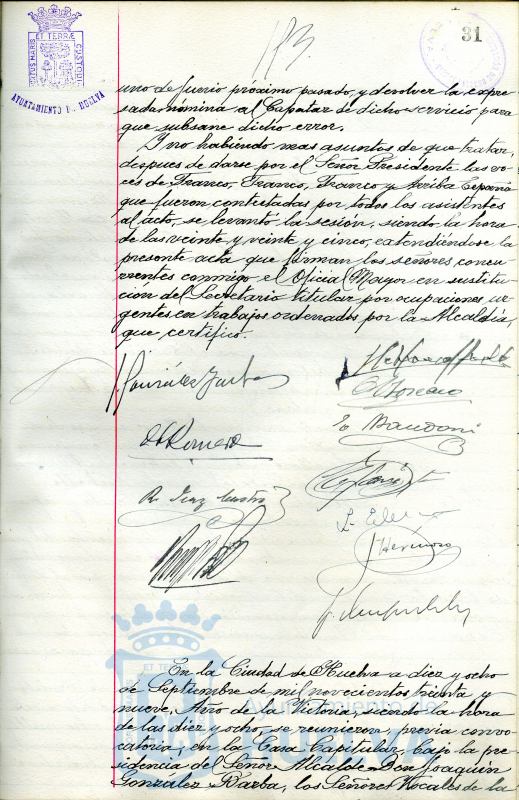 ET TERRAE
PORTUS MARIS
CUSTODI
AYUNTAMIENTO DE HUELVA
31
uno de Junio próximo pasado, y devolver la expre-
sada nómina al Capataz de dicho servicio para
que subsane dicho error.
Y no habiendo mas asuntos de que tratar,
despues de darse por el Señor Presidente las vo-
ces de Franco, Franco, Franco y Arriba España
que fueron contestadas por todos los asistentes
al acto, se levantó la sesión, siendo la hora
de las veinte y veinte y cinco, extendiéndose la
presente acta que firman los señores concu-
rrentes conmigo el Oficial Mayor en sustitu-
ción del Secretario titular por ocupaciones ur-
gentes en trabajos ordenados por la Alcaldía,
que certifico.
J. González Barba
O. Moreno
E. Mandoni
A. Romero
R. Diaz Castro
J. Hermoso
ET TE
En la Ciudad de Huelva a diez y ocho
de Septiembre de mil novecientos treinta y
nueve, Año de la Victoria, siendo la hora
de las diez y ocho, se reunieron, previa convo-
catoria, en la Casa Capitular, bajo la pre-
sidencia del Señor Alcalde Don Joaquín
González Barba, los Señores Vocales de la
Ayuntamiento de